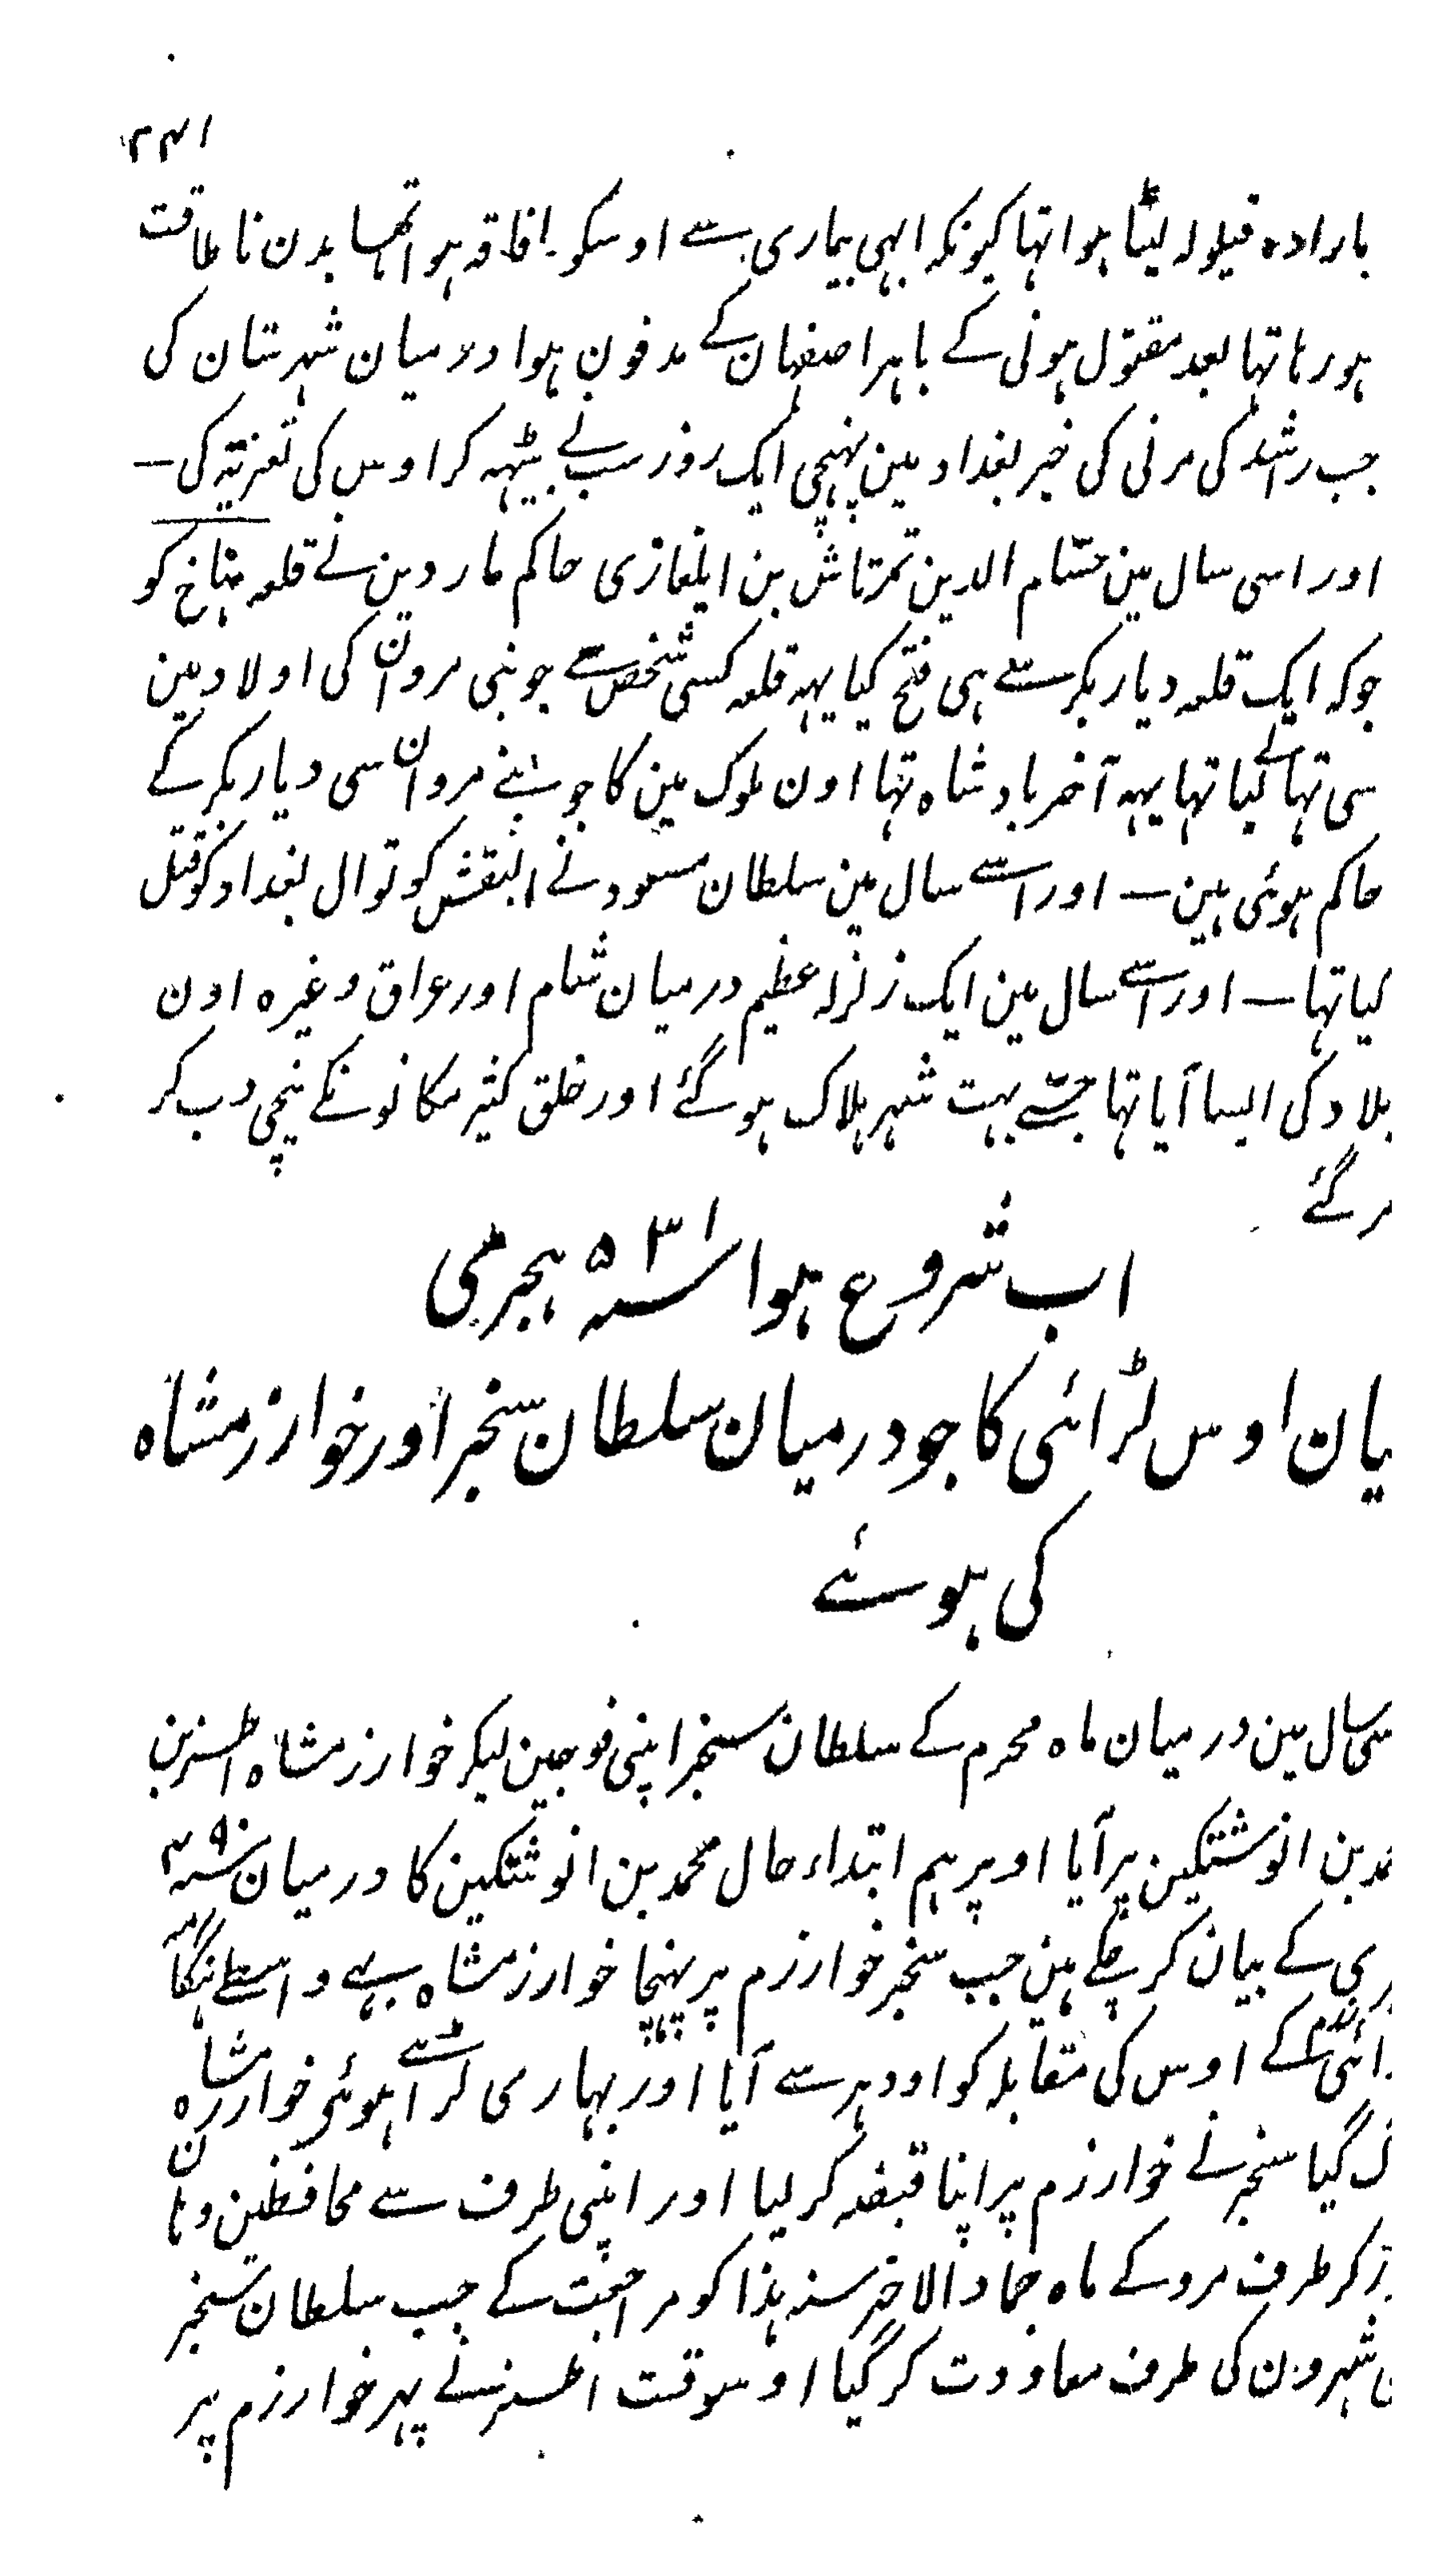 ۲۴۱
بارادہ قیلولہ لیٹا ہوا تہا کیونکہ ابہی بیماری سے اوسکو افاقہ ہوا تہا بدن ناطاقت
ہو رہا تہا بعد مقتول ہونی کے باہر اصفہان کے مدفون ہوا درمیان شہرستان کی
جب راشد کی مرنی کی خبر بغداد مین پہنچی ایک روز سب نے بیٹہہ کر اوس کی تعزیتہ کی —
اور اسی سال مین حسام الدین تمرتاش بن ایلغازی حاکم ماردین نے قلعہ ہتاخ کو
جوکہ ایک قلعہ دیاربکر سے ہی فتح کیا یہہ قلعہ کسی شخص سے جو بنی مروان کی اولاد مین
سی تہا لے لیا تہا یہہ آخر بادشاہ تہا اون ملوک مین کا جو بنے مروان سی دیار بکر کے
حاکم ہوئی ہین — اور اسے سال مین سلطان مسعود نے البقش کوتوال بغداد کو قتل
کیا تہا — اور اسے سال مین ایک زلزلہ عظیم درمیان شام اور عراق وغیرہ اون
بلاد کی ایسا آیا تہا جسّے بہت شہر ہلاک ہو گئے اور خلق کثیر مکانونکے نیچی دب کر
مر گئے
اب شروع ہوا سنہ ۵۳۱ ہجری
بیان اوس لڑائی کا جو درمیان سلطان سنجر اور خوارزمشاہ
کی ہوئے
سی سال مین درمیان ماہ محرم کے سلطان سنجر اپنی فوجین لیکر خوارزمشاہ اطسز بن
محمد بن انوشتکین پر آیا اوپر ہم ابتداء حال محمد بن انوشتکین کا درمیان سنہ ۴۹۰
ری کے بیان کر چکے ہین جب سنجر خوارزم پر پہنچا خوارزمشاہ بہے واسطے ہنگامہ
رائی کے اوس کی مقابلہ کو اودہر سے آیا اور بہاری لڑائے ہوئی خوارزمشاہ
گ گیا سنجر نے خوارزم پر اپنا قبضہ کر لیا اور اپنی طرف سے محافظین وہان
ڑ کر طرف مرو کے ماہ جمادالاخر سنہ ہذا کو مراجعت کے جب سلطان سنجر
ی شہرون کی طرف معاودت کر گیا اوسوقت اطسز نے پہر خوارزم پر